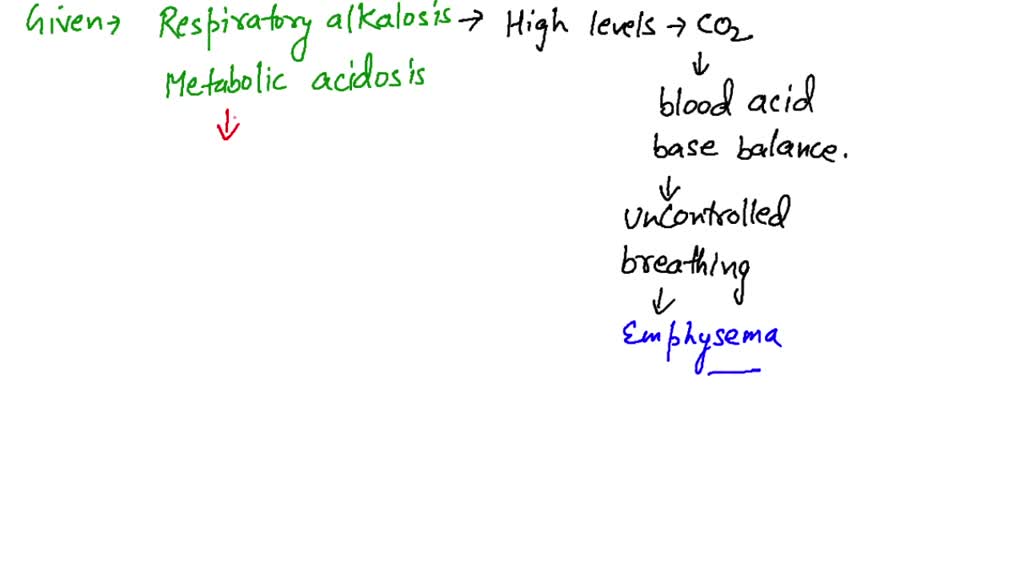 Given → Respiratory alkalosis → High levels → CO2
Metabolic acidosis
↓
↓
blood acid
base balance.
↓
uncontrolled
breathing
↓
Emphysema